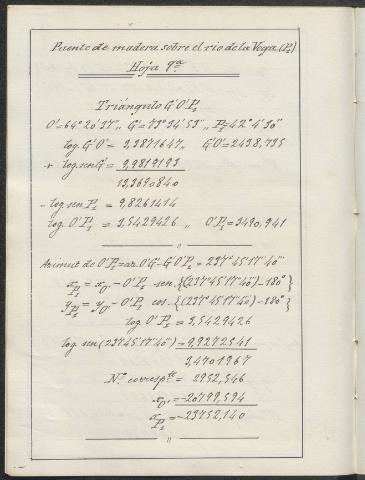 Puente de madera sobre el rio de la Vega (P₂)
Hoja 9ª
Triángulo G'O'P₂
O'=64°20'37", G'=73°34'53", P₂=42°4'30"
log. G'O' = 3,3871647,, G'O'=2438,735
+ log. sen G' = 9,9819193
13,3690840
- log. sen P₂ = 9,8261414
log. O'P₂ = 3,5429426 ,, O'P₂=3490,941
Azimut de O'P₂=az. O'G'-G'O'P₂=237°45'17"40'''
x P₂ = x O' - O'P₂ sen {(237°45'17"40''')-180°}
y P₂ = y O' - O'P₂ cos {(237°45'17"40''')-180°}
log O'P₂ = 3,5429426
log sen (237°45'17"40''') = 9,9272541
3,4701967
Nº correspte = 2952,546
x O' = -20799,594
x P₂ = -23752,140